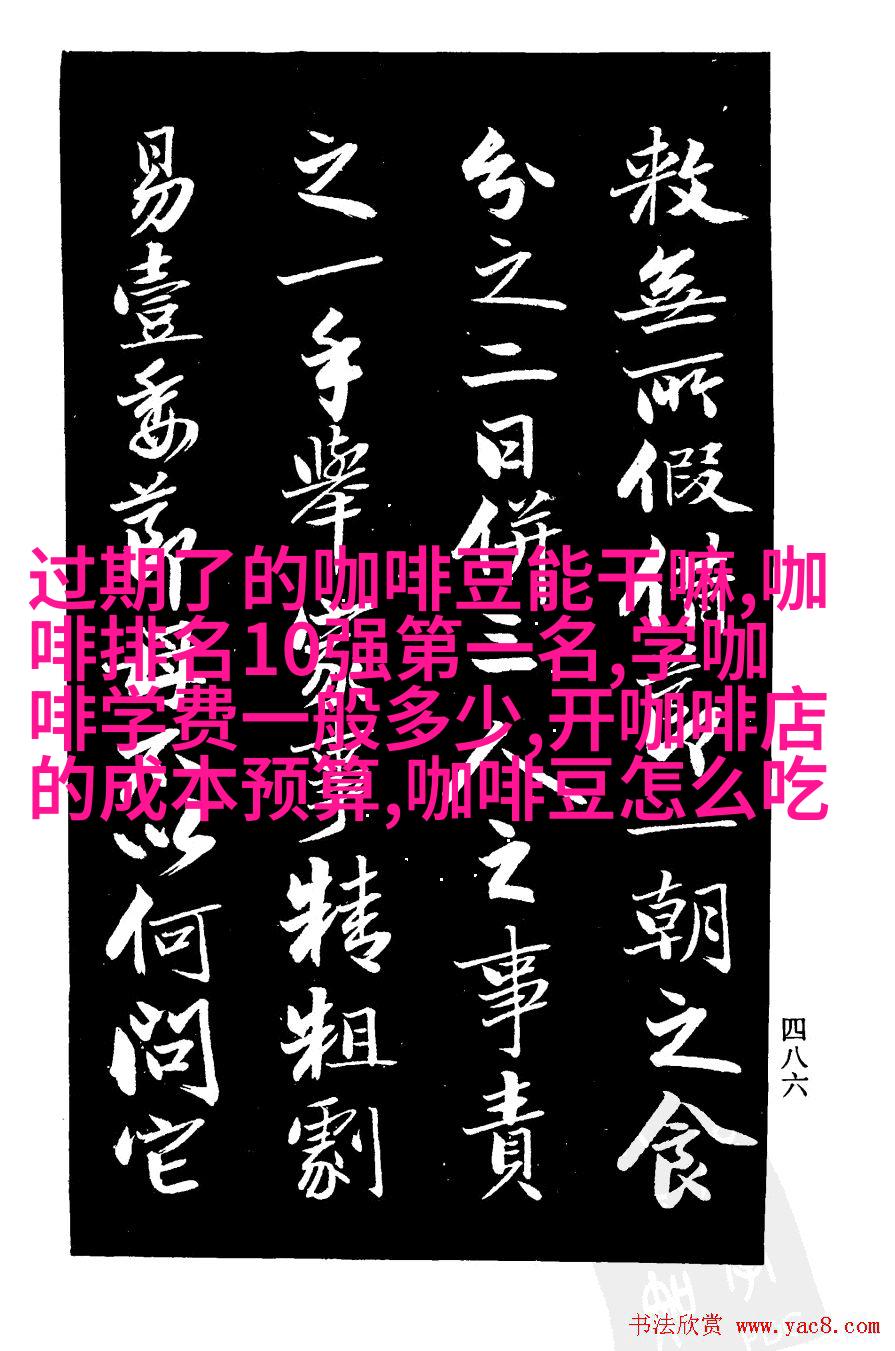 敕無所假借一朝之食
分之二日併三人之事責
之一手舉事精粗劇
易壹委以何問它
过期了的咖啡豆能干嘛,咖
啡排名10强第一名,学咖
啡学费一般多少,开咖啡店
的成本预算,咖啡豆怎么吃
四八六
书法欣赏 www.yac8.com